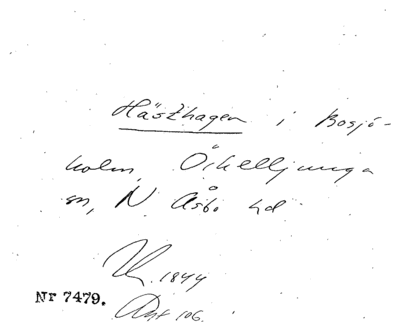 Hästhagen i Bosjö-
holm, Örkelljunga
sn, N. Åsbo hd
1844
Nr 7479.
106.